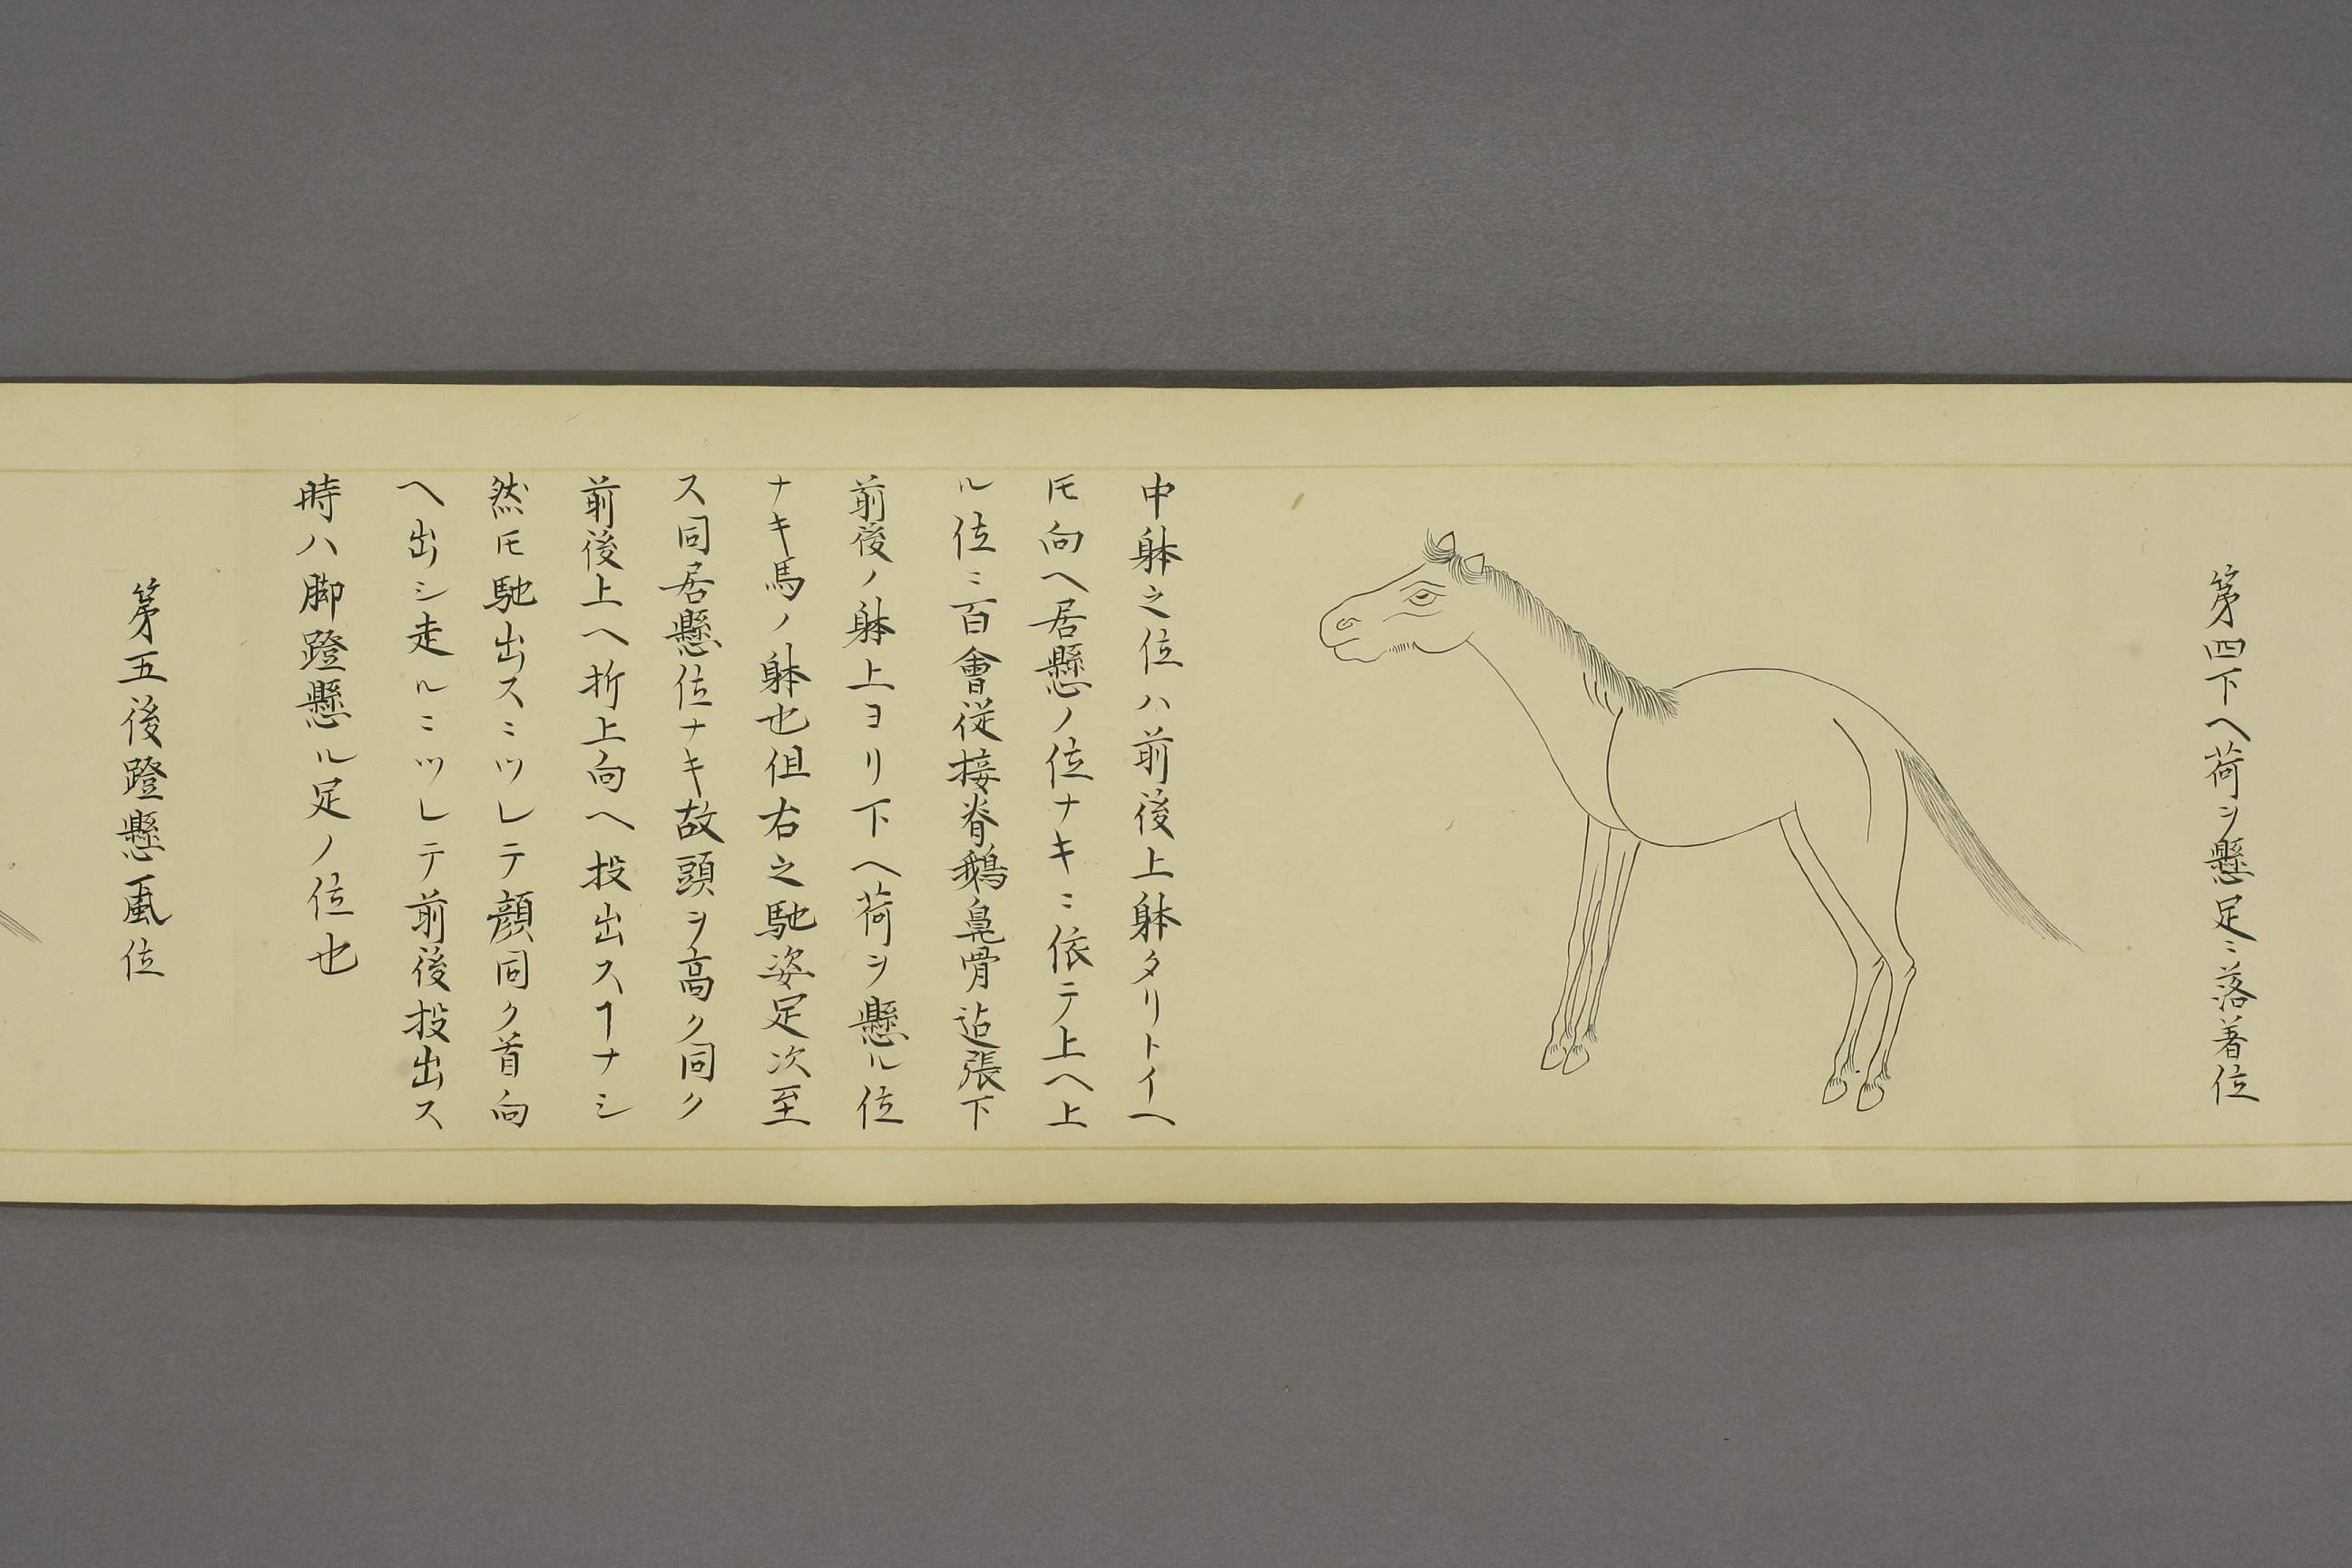 第四下ヘ荷ヲ懸足ニ落着位
中躰之位ハ前後上躰タリトイヘ
𪜈向ヘ居懸ノ位ナキニ依テ上ヘ上
ル位ニ百會従接脊鵝鼻骨迠張下
前後ノ躰上ヨリ下ヘ荷ヲ懸ル位
ナキ馬ノ躰也但右之馳姿足次至
ス同居懸位ナキ故頭ヲ高ク同ク
前後上ヘ折上向ヘ投出スヿナシ
然𪜈馳出スニツレテ顔同ク首向
ヘ出シ走ルニツレテ前後投出ス
時ハ脚蹬懸ル足ノ位也
第五後蹬懸 位